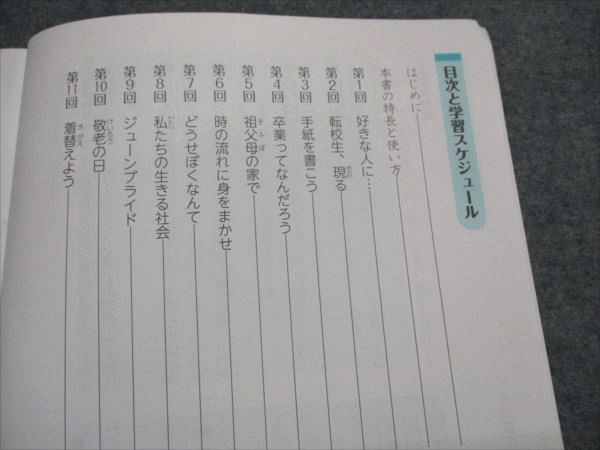 目次と学習スケジュール
はじめに
本書の特長と使い方
第1回 好きな人に…
第2回 転校生、現る
第3回 手紙を書こう
第4回 卒業ってなんだろう
第5回 祖父母の家で
第6回 時の流れに身をまかせ
第7回 どうせぼくなんて
第8回 私たちの生きる社会
第9回 ジューンブライド
第10回 敬老の日
第11回 着替えよう